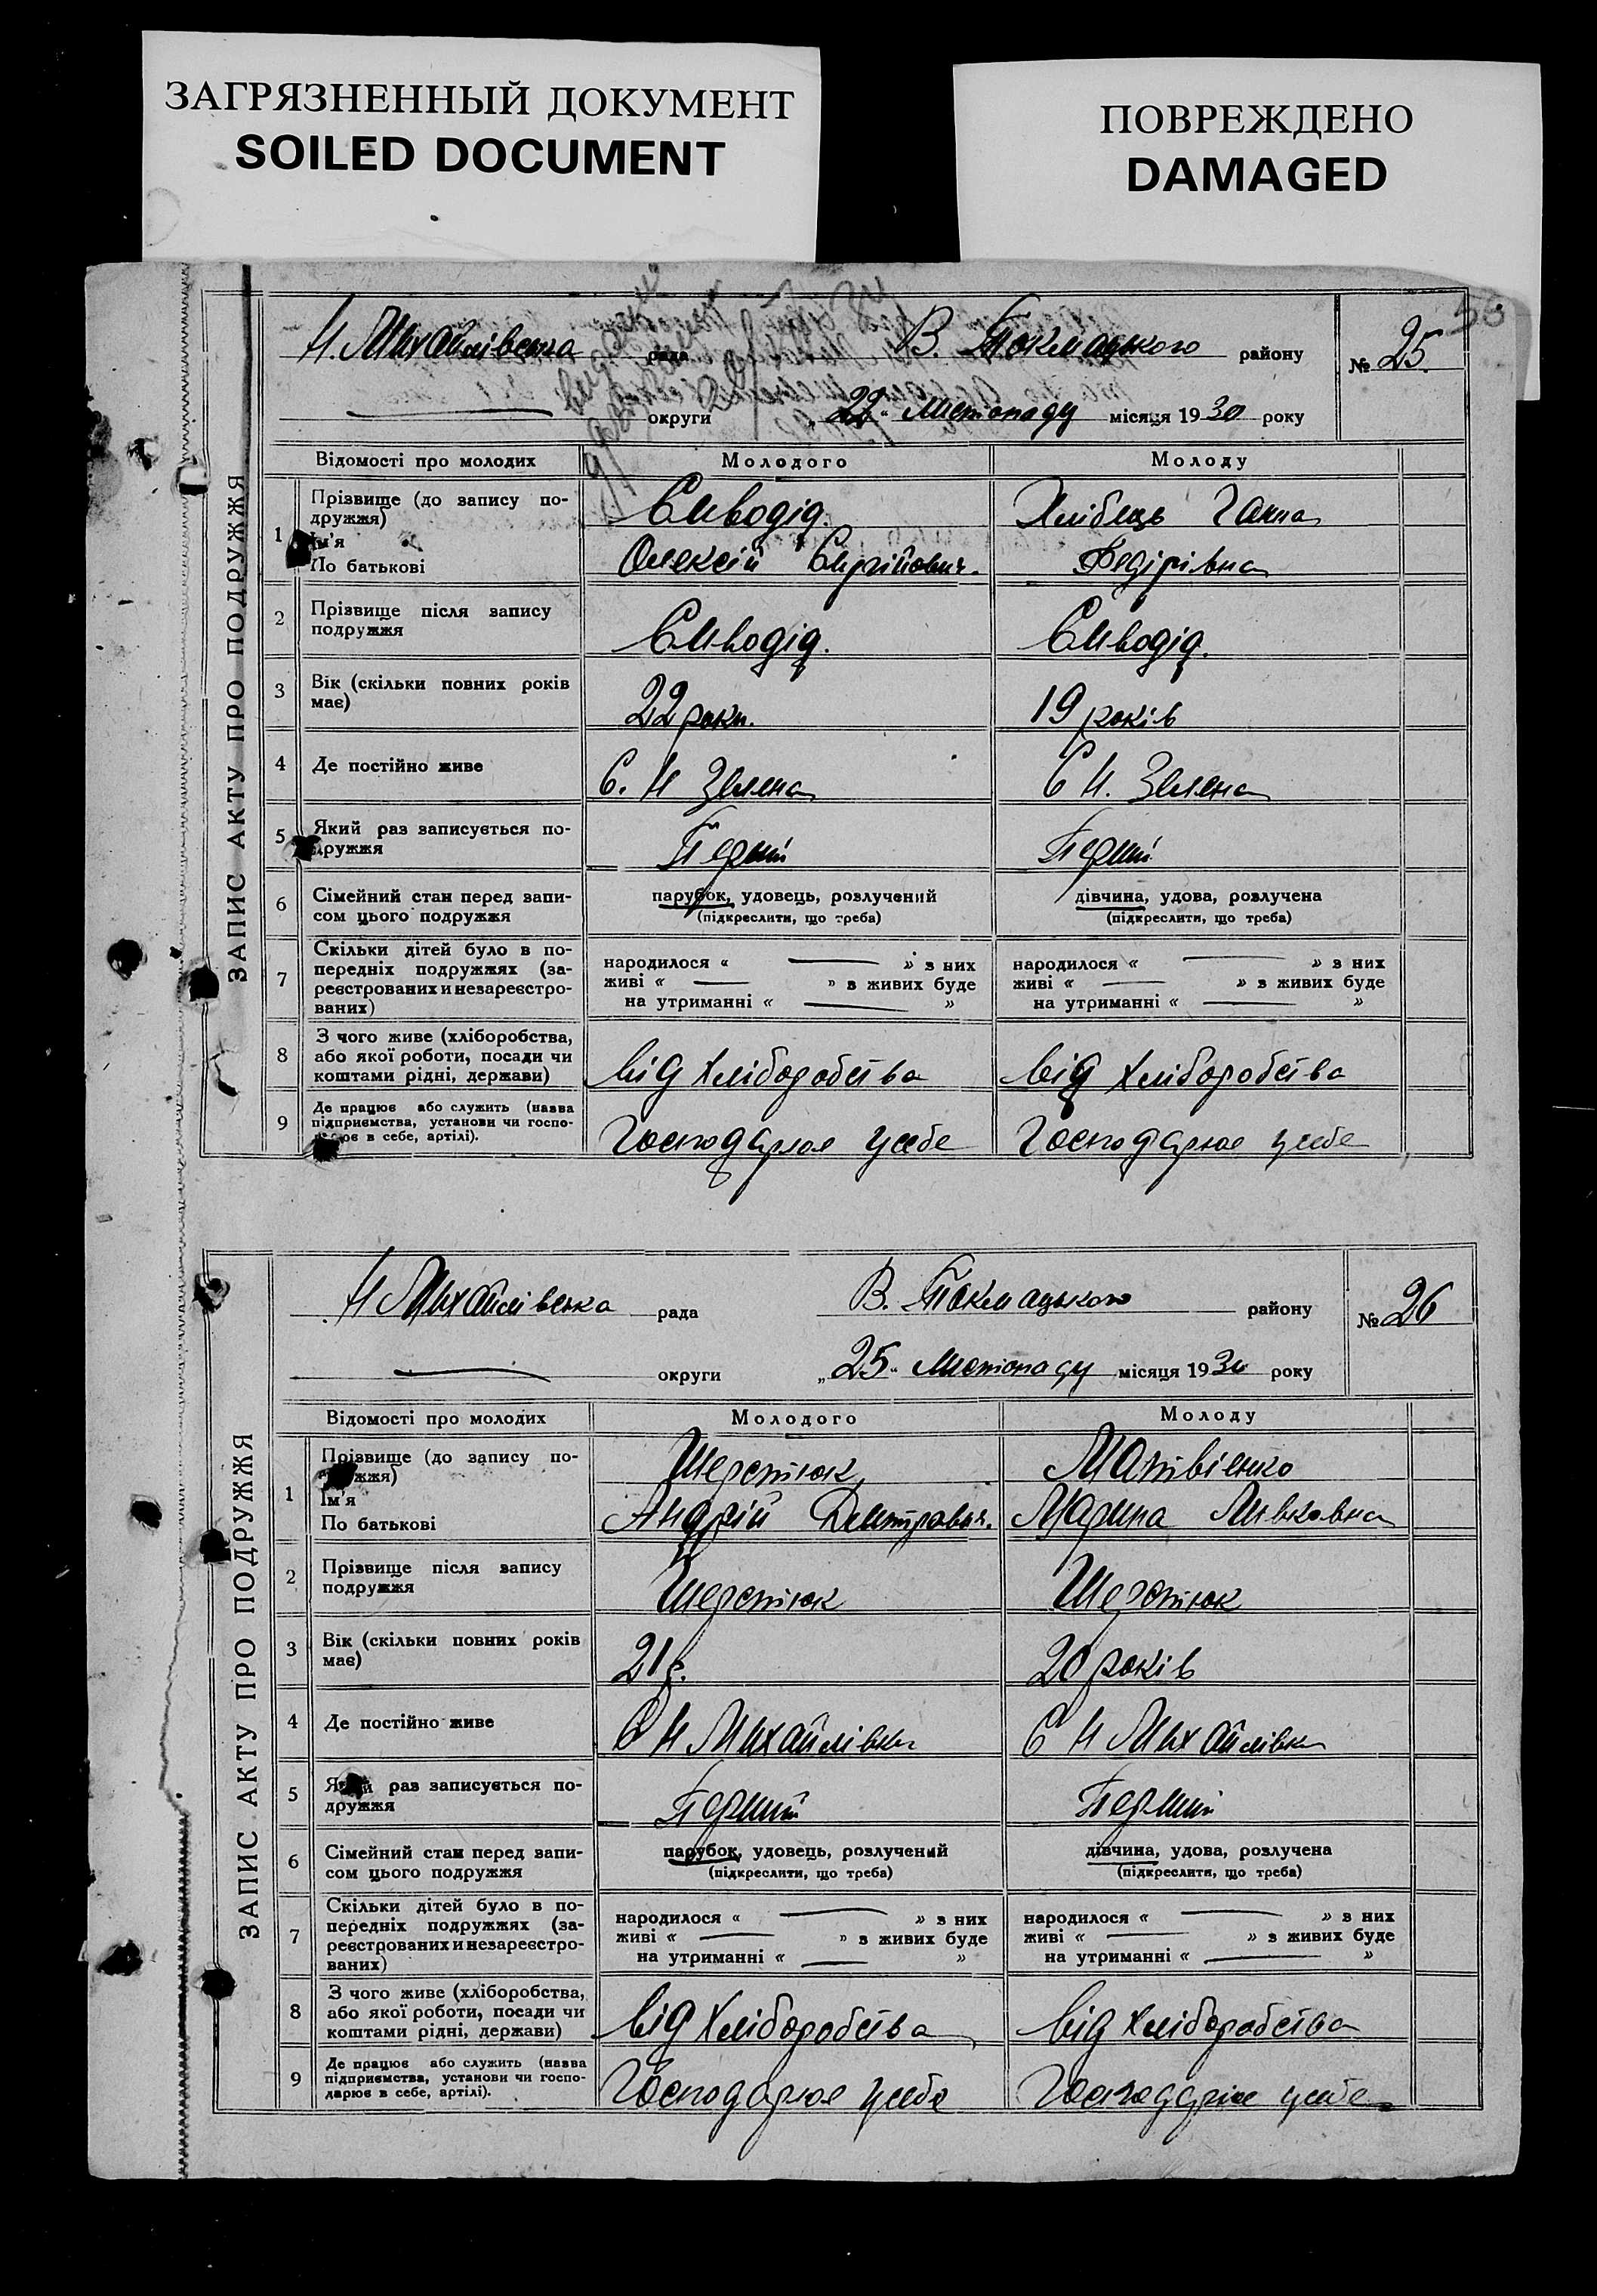 ЗАГРЯЗНЕННЫЙ ДОКУМЕНТ
SOILED DOCUMENT
ПОВРЕЖДЕНО
DAMAGED
ЗАПИС АКТУ ПРО ПОДРУЖЖЯ
Н. Михайлівська рада В. Токмацького району № 25.
округи „22“ Листопаду місяця 1930 року
Відомості про молодих Молодого Молоду
1 Прізвище (до запису по- Сиводід. Хлібець Ганна
дружжя)
Ім'я
По батькові Олексій Сергійович. Федірівна
2 Прізвище після запису
подружжя Сиводід. Сиводід.
3 Вік (скільки повних років
має) 22 роки. 19 років
4 Де постійно живе С. Н Зелена С Н. Зелена
5 Який раз записується по-
дружжя Перший Перший
6 Сімейний стан перед запи- парубок, удовець, розлучений дівчина, удова, розлучена
сом цього подружжя (підкреслити, що треба) (підкреслити, що треба)
7 Скільки дітей було в по-
передніх подружжях (за- народилося « » з них народилося « » з них
реєстрованих и незареєстро- живі « » з живих буде живі « » з живих буде
ваних) на утриманні « » на утриманні « »
8 З чого живе (хліборобства,
або якої роботи, посади чи
коштами рідні, держави) від хліборобства від хліборобства
9 Де працює або служить (назва
підприємства, установи чи госпо-
в себе, артілі). Господарює у себе Господарює у себе
ЗАПИС АКТУ ПРО ПОДРУЖЖЯ
Н Михайлівська рада В. Токмацького району № 26
округи „25“ Листопаду місяця 1930 року
Відомості про молодих Молодого Молоду
1 Прізвище (до запису по- Шерстюк Матвієнко
Ім'я
По батькові Андрій Дмитрович. Марина
2 Прізвище після запису
подружжя Шерстюк Шерстюк
3 Вік (скільки повних років
має) 21 р. 20 років
4 Де постійно живе С Н Михайлівка С Н Михайлівка
5 раз записується по-
дружжя Перший Перший
6 Сімейний стан перед запи- парубок, удовець, розлучений дівчина, удова, розлучена
сом цього подружжя (підкреслити, що треба) (підкреслити, що треба)
7 Скільки дітей було в по-
передніх подружжях (за- народилося « » з них народилося « » з них
реєстрованих и незареєстро- живі « » з живих буде живі « » з живих буде
ваних) на утриманні « » на утриманні « »
8 З чого живе (хліборобства,
або якої роботи, посади чи
коштами рідні, держави) від хліборобства від хліборобства
9 Де працює або служить (назва
підприємства, установи чи госпо-
дарює в себе, артілі). Господарює у себе Господарює у себе